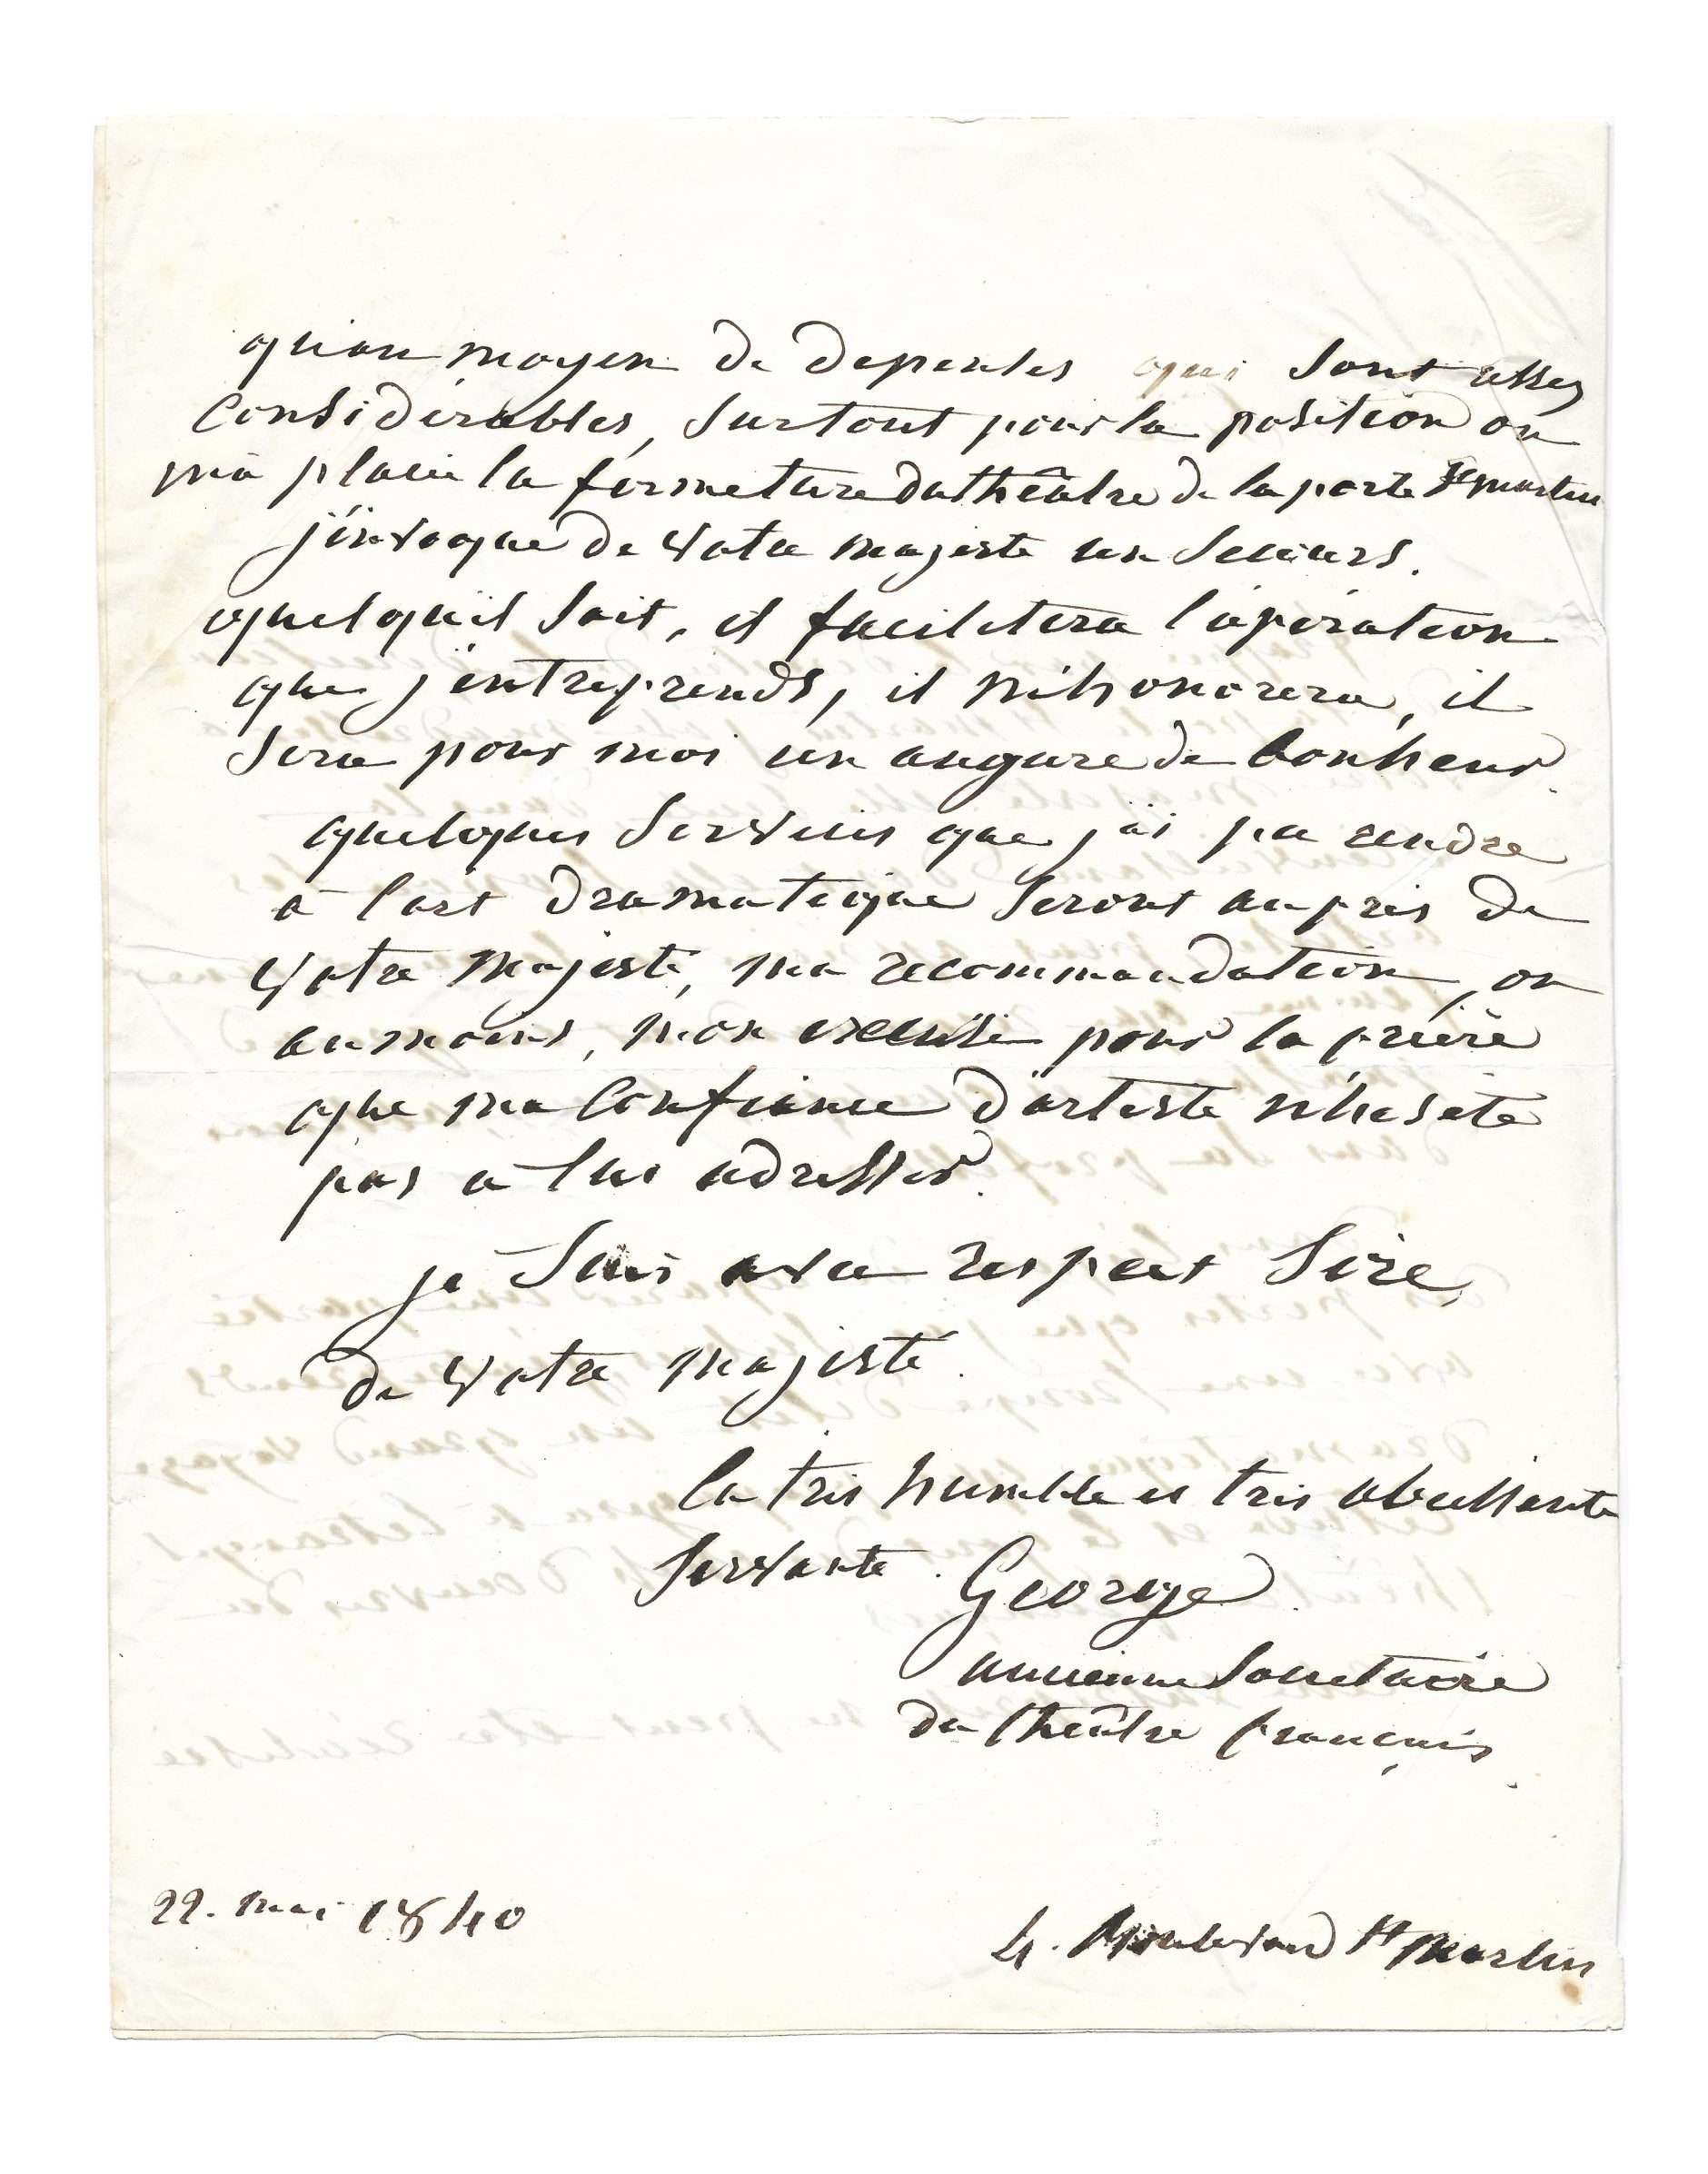 qu'au moyen de depenses qui sont assez
considérables, surtout pour la position ou
m'a placée la fermeture du théâtre de la porte St martin
j'invoque de votre majesté un secours.
quelqu'il soit, il facilitera l'opération
que j'entreprends, il m'honorera, il
sera pour moi un augure de bonheur.
quelques services que j'ai pu rendre
à l'art dramatique seront auprès de
votre majesté, ma recommandation, ou
au moins, mon excuse pour la prière
que ma confiance d'artiste n'hesite
pas a lui adresser.
je suis avec respect Sire,
de votre majesté.
la très humble et très obeissante
servante. George.
ancienne Societaire
du théâtre français.
22. mai 1840
4. Boulevard St Martin